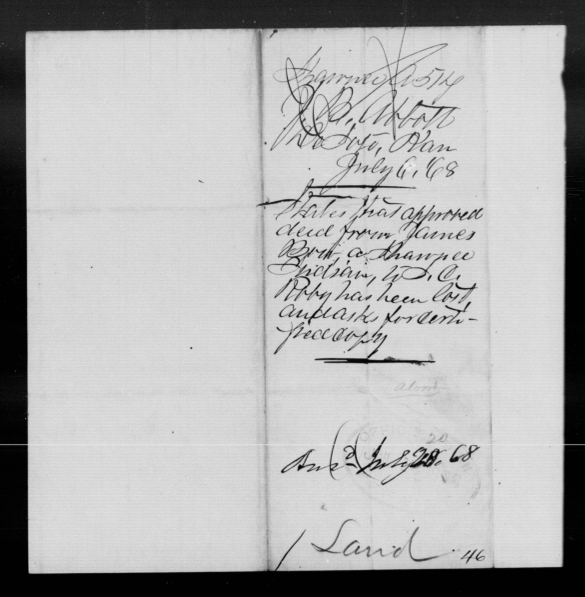 Shawnee A 514
J. B. Abbott
De Soto, Kan
July 6, '68
States that approved
deed from James
Bow, a Shawnee
Indian, to S. C.
Roby has been lost,
and asks for certi-
fied copy
Ansd July 28, 68
Land
46